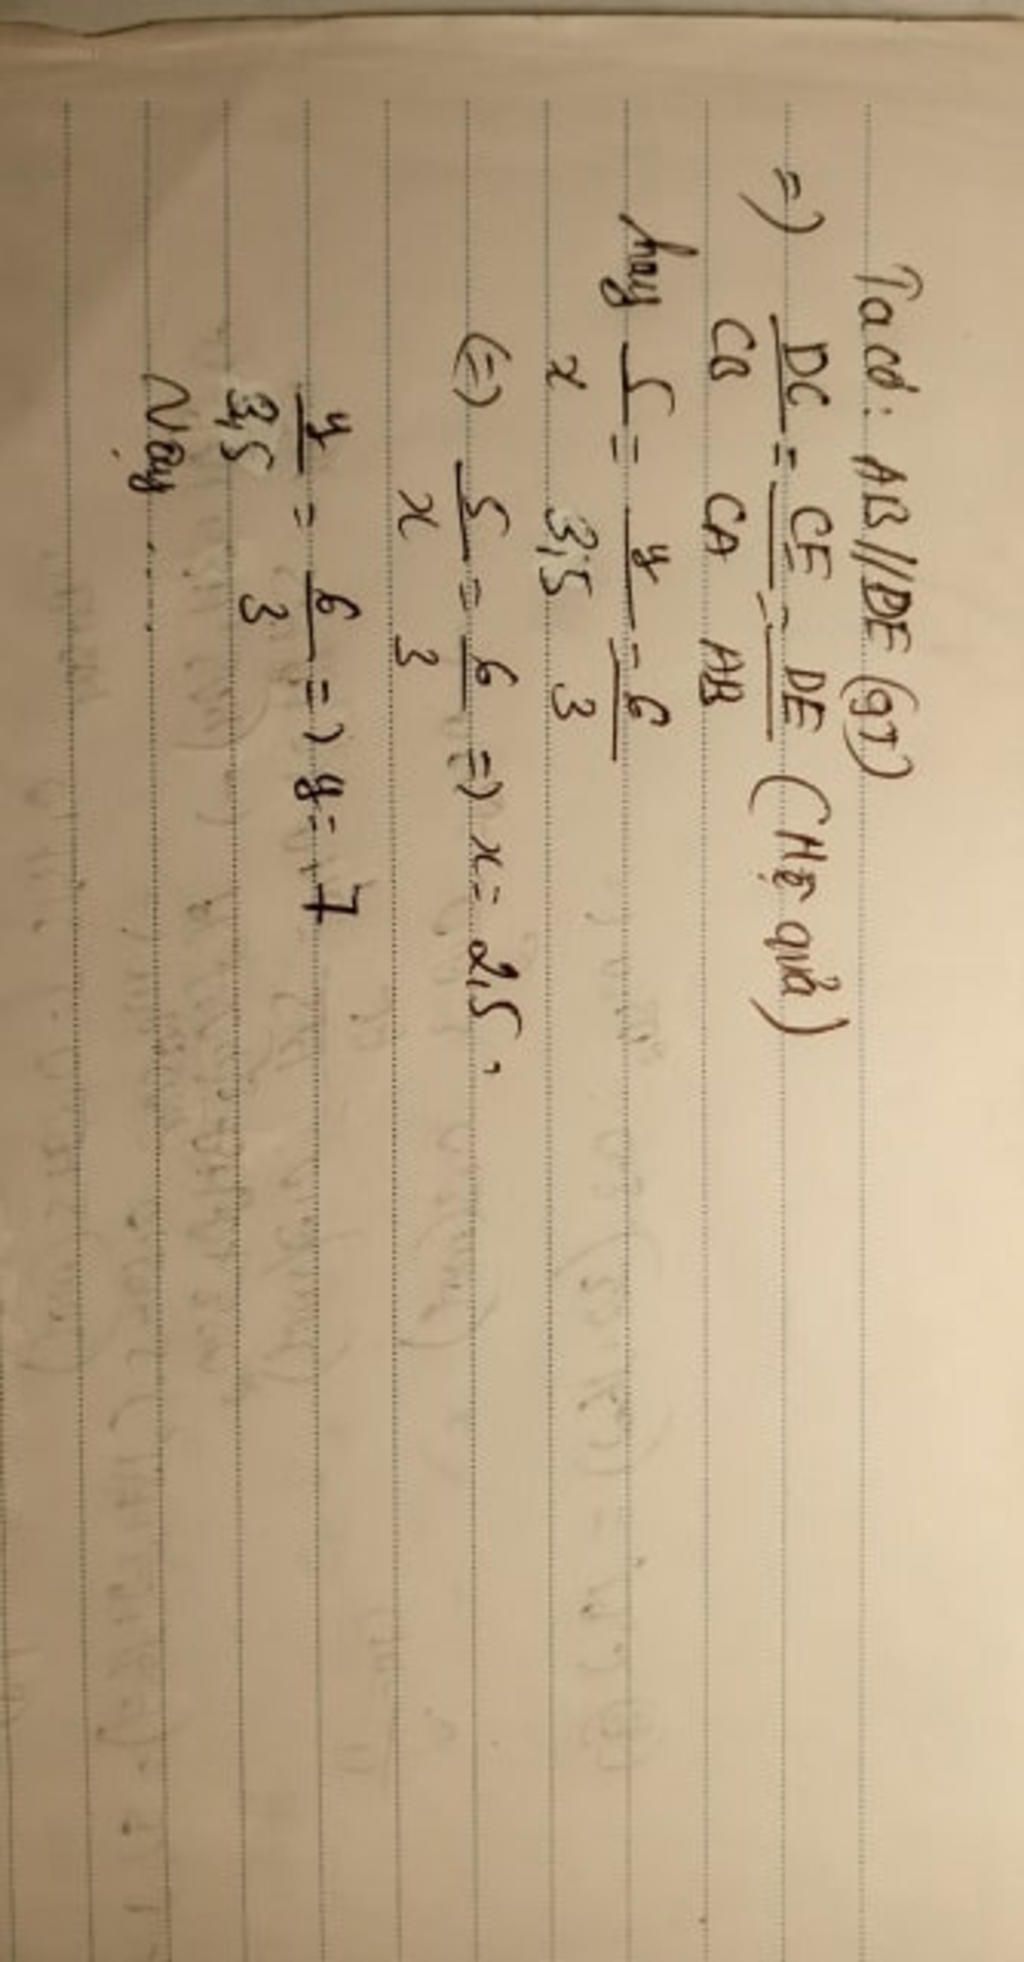 Ta có: AB//DE (gt)
=) DC/CB = CE/CA = DE/AB (Hệ quả)
hay 5/x = y/3,5 = 6/3
(=) 5/x = 6/3 =) x = 2,5,
y/3,5 = 6/3 =) y = 7
Vậy.....